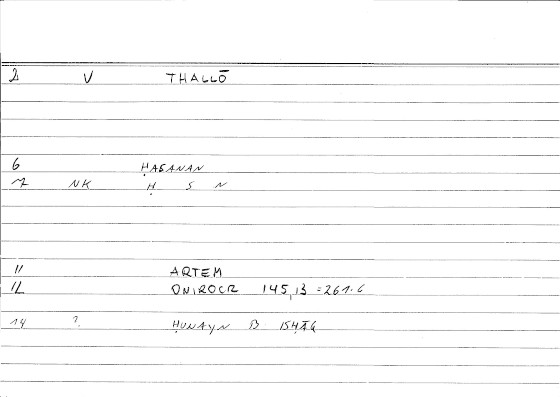 2 V THALLŌ
6 ḤASANAN
7 NK Ḥ S N
11 ARTEM
12 ONIROCR 145,13 = 261.6
14 ? ḤUNAYN B ISḤĀG